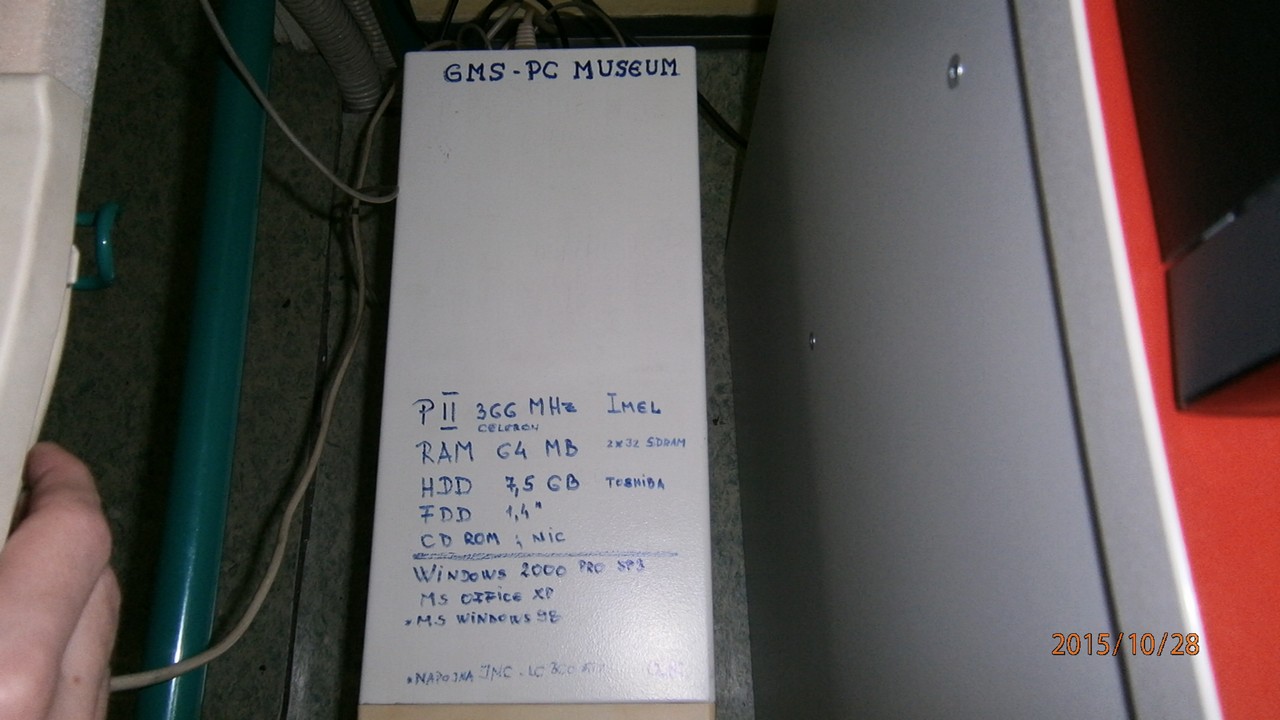 GMS - PC MUSEUM
PII 366 MHz IMEL
CELERON
RAM 64 MB 2x32 SDRAM
HDD 7,5 GB TOSHIBA
FDD 1,4"
CD ROM ; NIC
WINDOWS 2000 PRO SP3
MS OFFICE XP
* MS WINDOWS 98
* NAPOJNA JNC - LC 300
2015/10/28